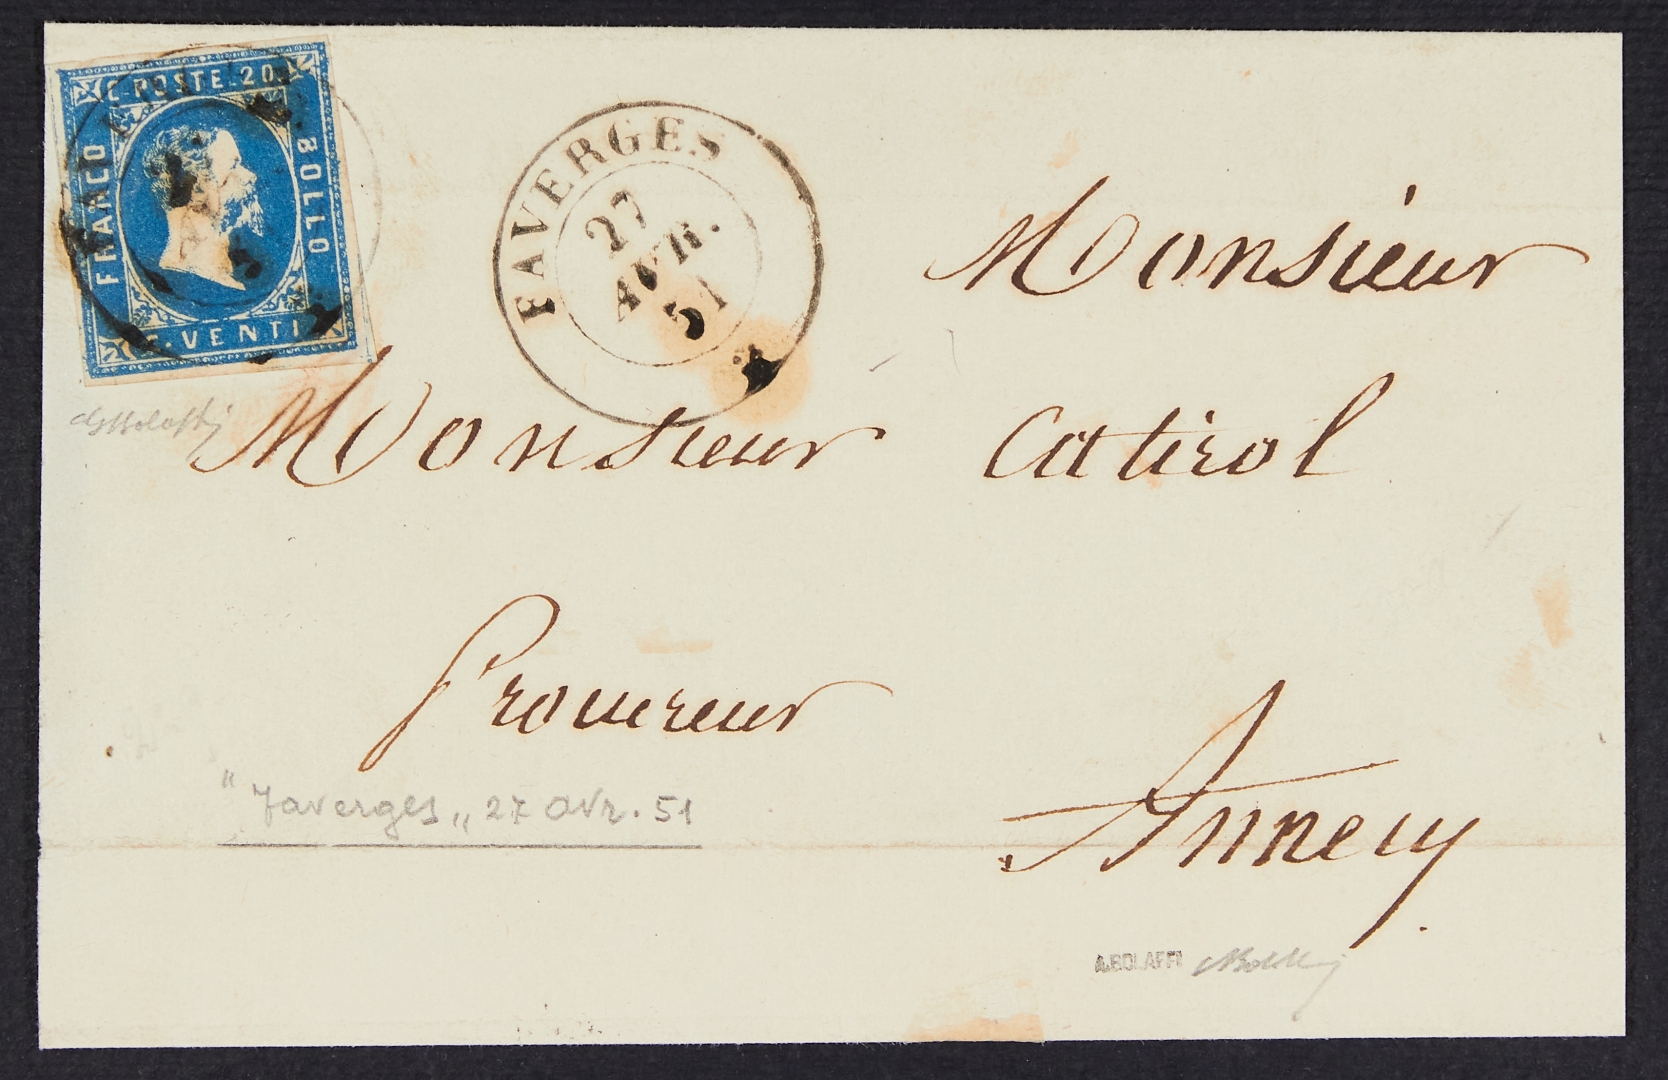 C. POSTE. 20.
FRANCO
BOLLO
20 C. VENTI
FAVERGES
27
AVR.
51
Monsieur
Monsieur Catirol
Procureur
"Faverges„ 27 avr. 51
Annecy
A.BOLAFFI